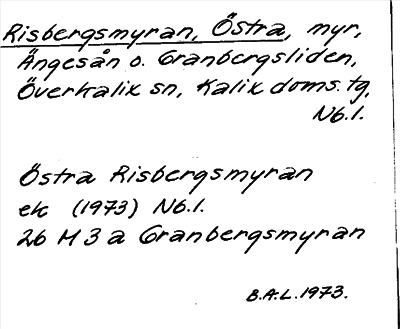 Risbergsmyran, Östra, myr,
Ängesån o. Granbergsliden,
Överkalix sn, Kalix doms. tg,
Nb.l.
Östra Risbergsmyran
ek (1973) Nb.l.
26 M 3 a Granbergsmyran
B.A.L. 1973.